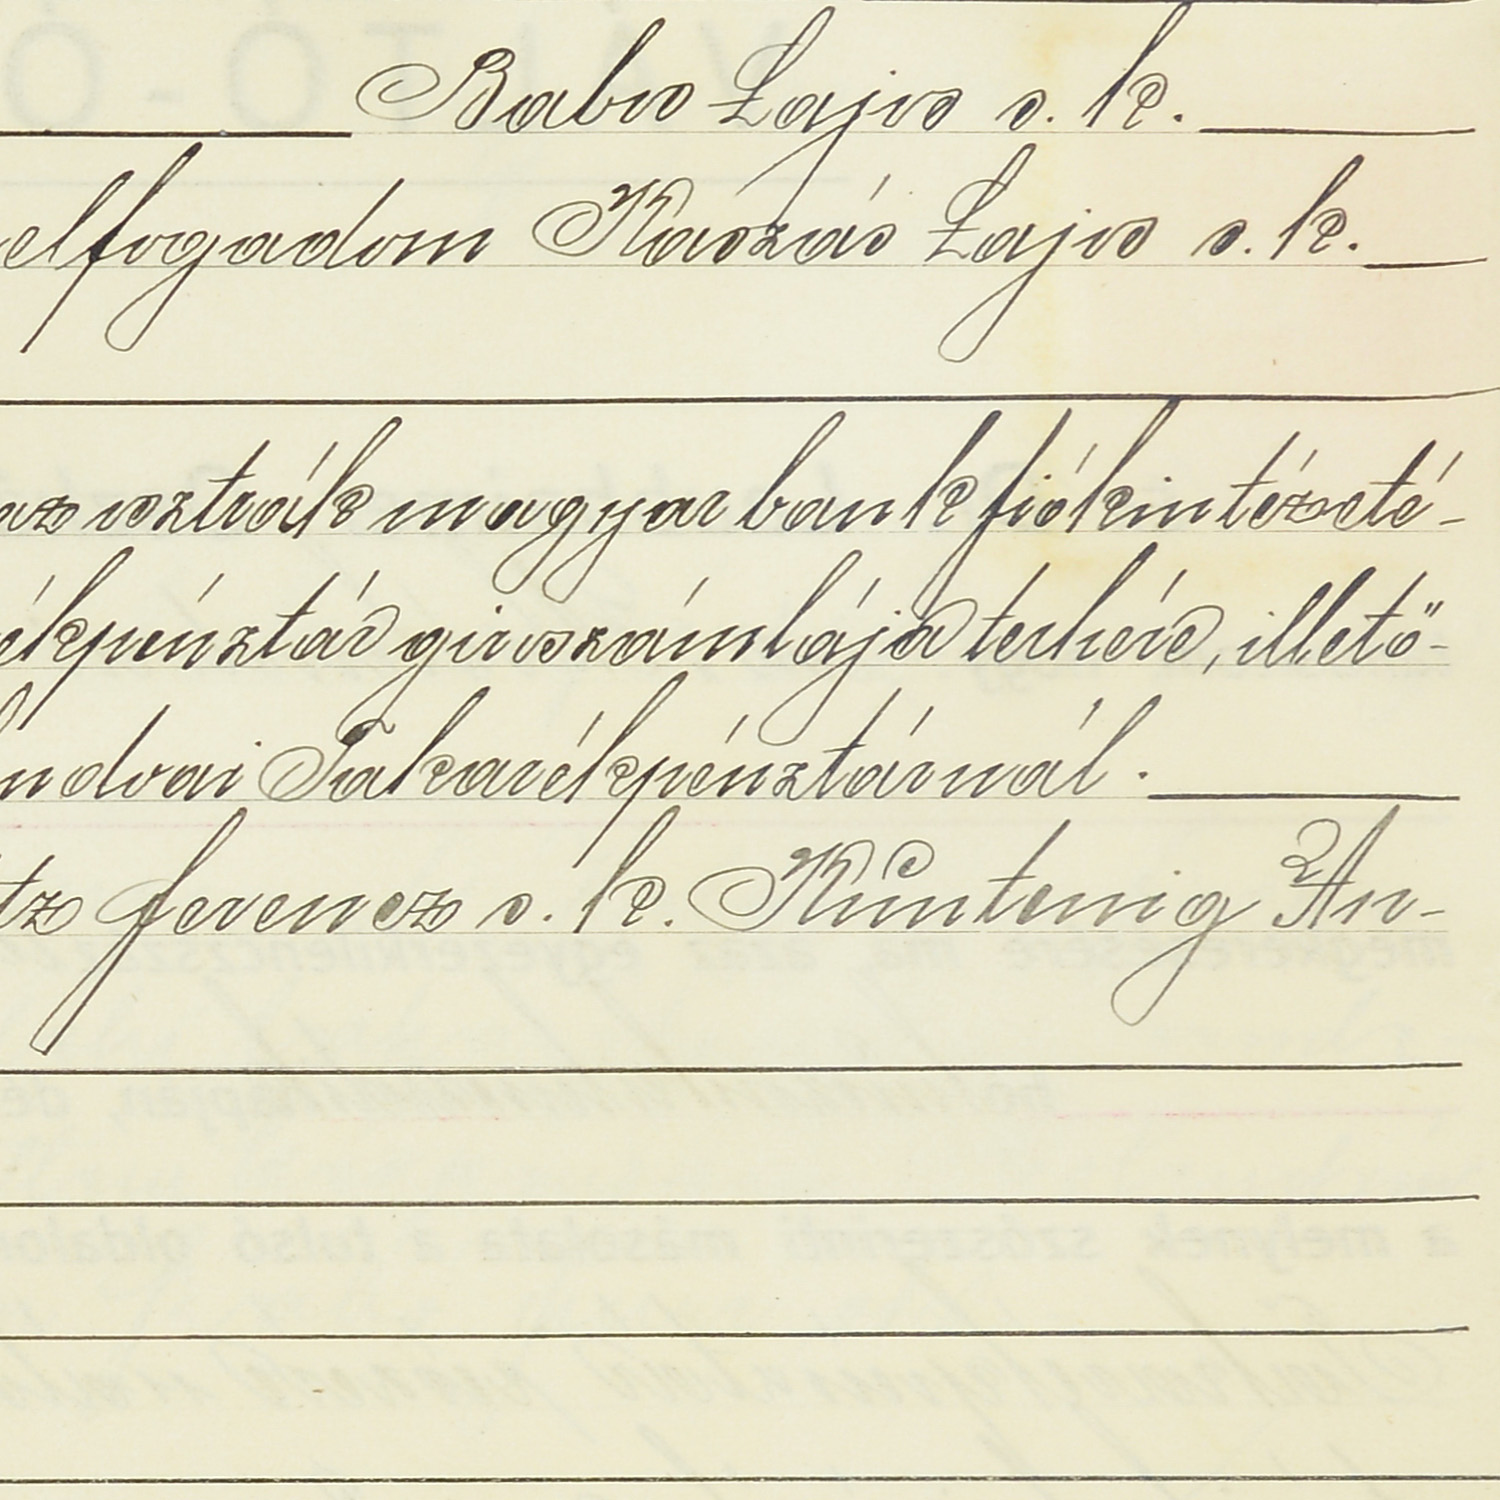 Babos Lajos s. k.
elfogadom Kaszás Lajos s. k.
az osztrák magyar bank fiókintézeté-
ékpénztár giroszámlája terhére, illető-
ndvai Takarékpénztárnál.
tz Ferencz s. k. Küntenig An-